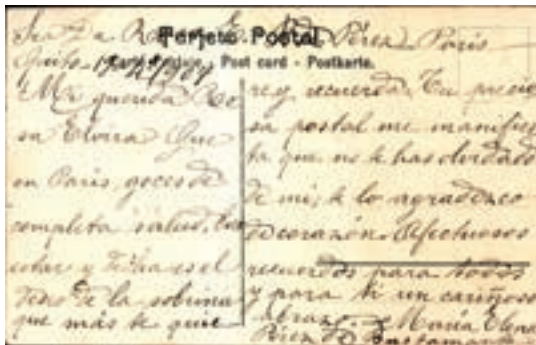 Sra Da Rosa E. de Pérez - Paris
Tarjeta Postal
Post card - Postkarte.
Quito
Mi querida Ro
sa Elvira Que
en Paris, goces de
completa salud,
estar y dicha es el
deseo de la sobrina
que más te quie
re y recuerda Tu precio
sa postal me manifies
ta que no te has olvidado
de mi, te lo agradezco
de corazón. Afectuosos
recuerdos para todos
y para ti un cariñoso
abrazo. María Elena
Pérez Bustamante